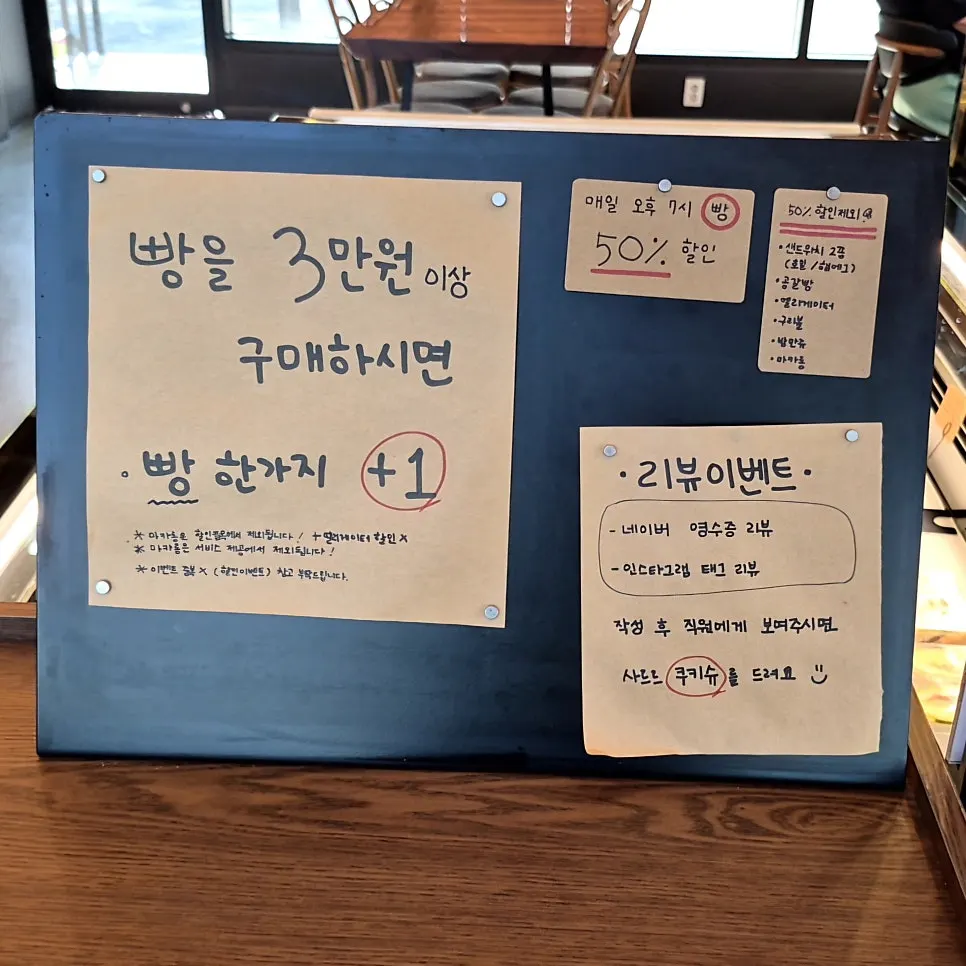 빵을 3만원 이상
구매하시면
· 빵 한가지 +1
* 마카롱은 할인품목에서 제외됩니다! + 엘리게이터 할인 X
* 마카롱은 서비스 제공에서 제외됩니다!
* 이벤트 중복 X (할인이벤트) 참고 부탁드립니다.
매일 오후 7시 빵
50% 할인
50% 할인제외
· 샌드위치 2종
(호밀 / 햄에그)
· 공갈빵
· 엘리게이터
· 구리볼
· 밤만쥬
· 마카롱
· 리뷰이벤트 ·
- 네이버 영수증 리뷰
- 인스타그램 태그 리뷰
작성 후 직원에게 보여주시면
사르르 쿠키슈를 드려요